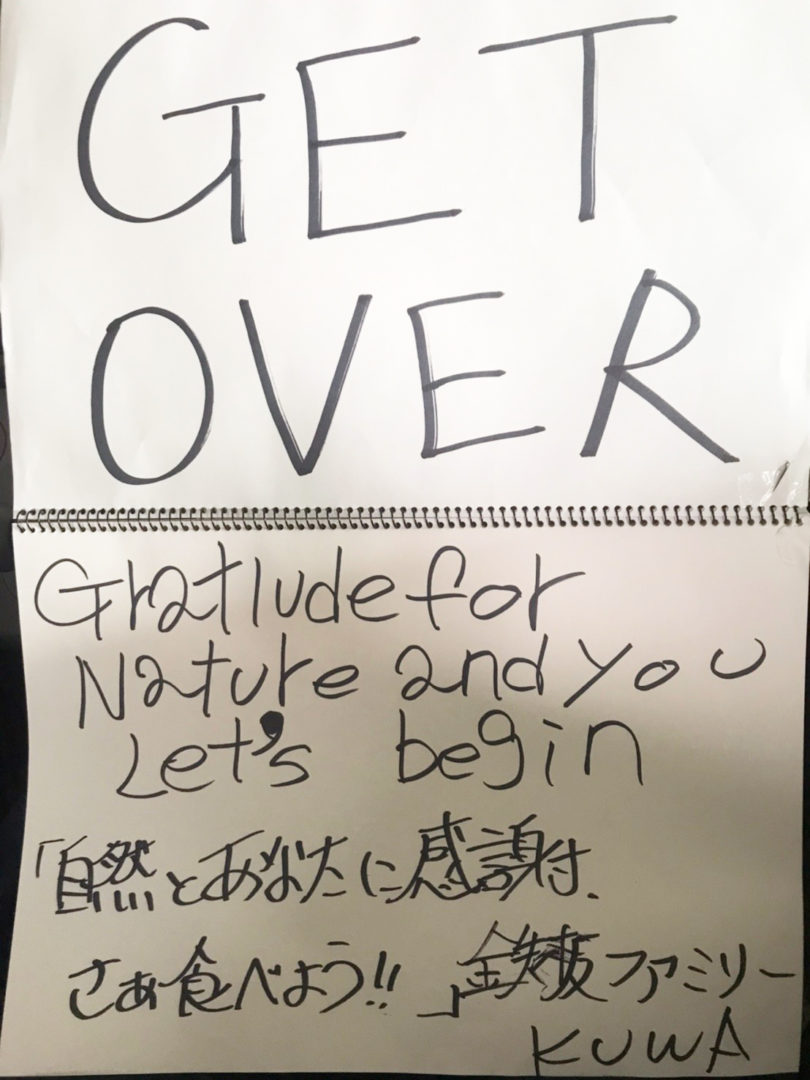 GET
OVER
Gratlude for
Nature and you
Let's begin
「自然とあなたに感謝、
さあ食べよう!!」鉄板ファミリー
KUWA